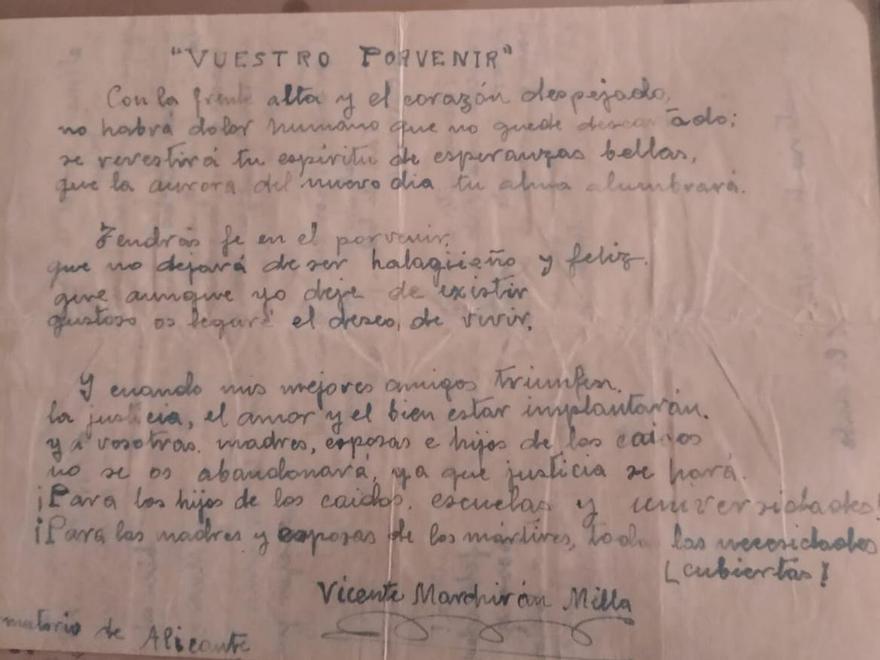 "VUESTRO PORVENIR"
Con la frente alta y el corazón despejado,
no habrá dolor humano que no quede descartado;
se revestirá tu espíritu de esperanzas bellas,
que la aurora del nuevo dia tu alma alumbrará.
Tendrás fe en el porvenir,
que no dejará de ser halagüeño y feliz.
que aunque yo deje de existir
gustoso os legaré el deseo, de vivir.
Y cuando mis mejores amigos triunfen.
la justicia, el amor y el bien estar implantarán.
y a vosotras. madres, esposas e hijos de los caidos
no se os abandonará, ya que justicia se hará.
¡Para los hijos de los caidos. escuelas y universidades!
¡Para las madres y esposas de los mártires, toda las necesidades
(cubiertas!
Vicente Marchirán Milla
matorio de Alicante